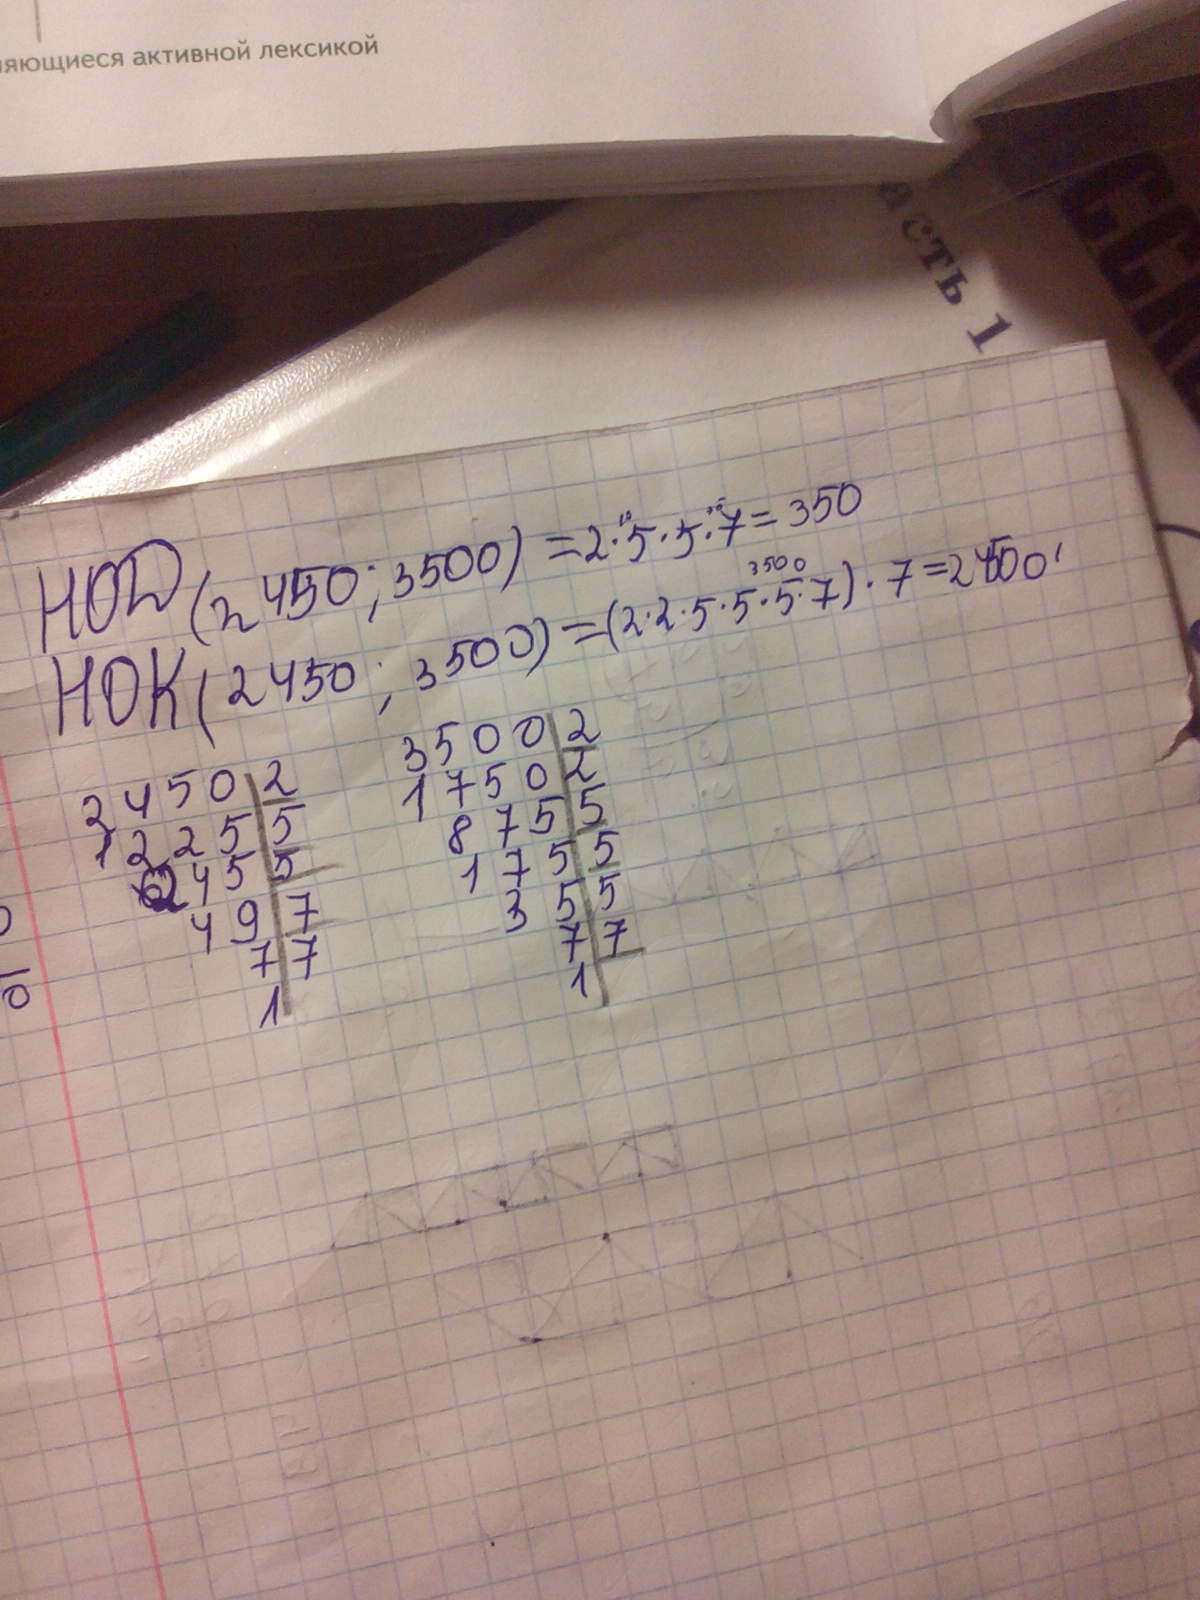 яющиеся активной лексикой
асть 1
НОД (2450; 3500) = 2·5·5·7 = 350
3500
НОК (2450; 3500) = (2·2·5·5·5·7)·7 = 24500
2450 | 2
1225 | 5
245 | 5
49 | 7
7 | 7
1
3500 | 2
1750 | 2
875 | 5
175 | 5
35 | 5
7 | 7
1